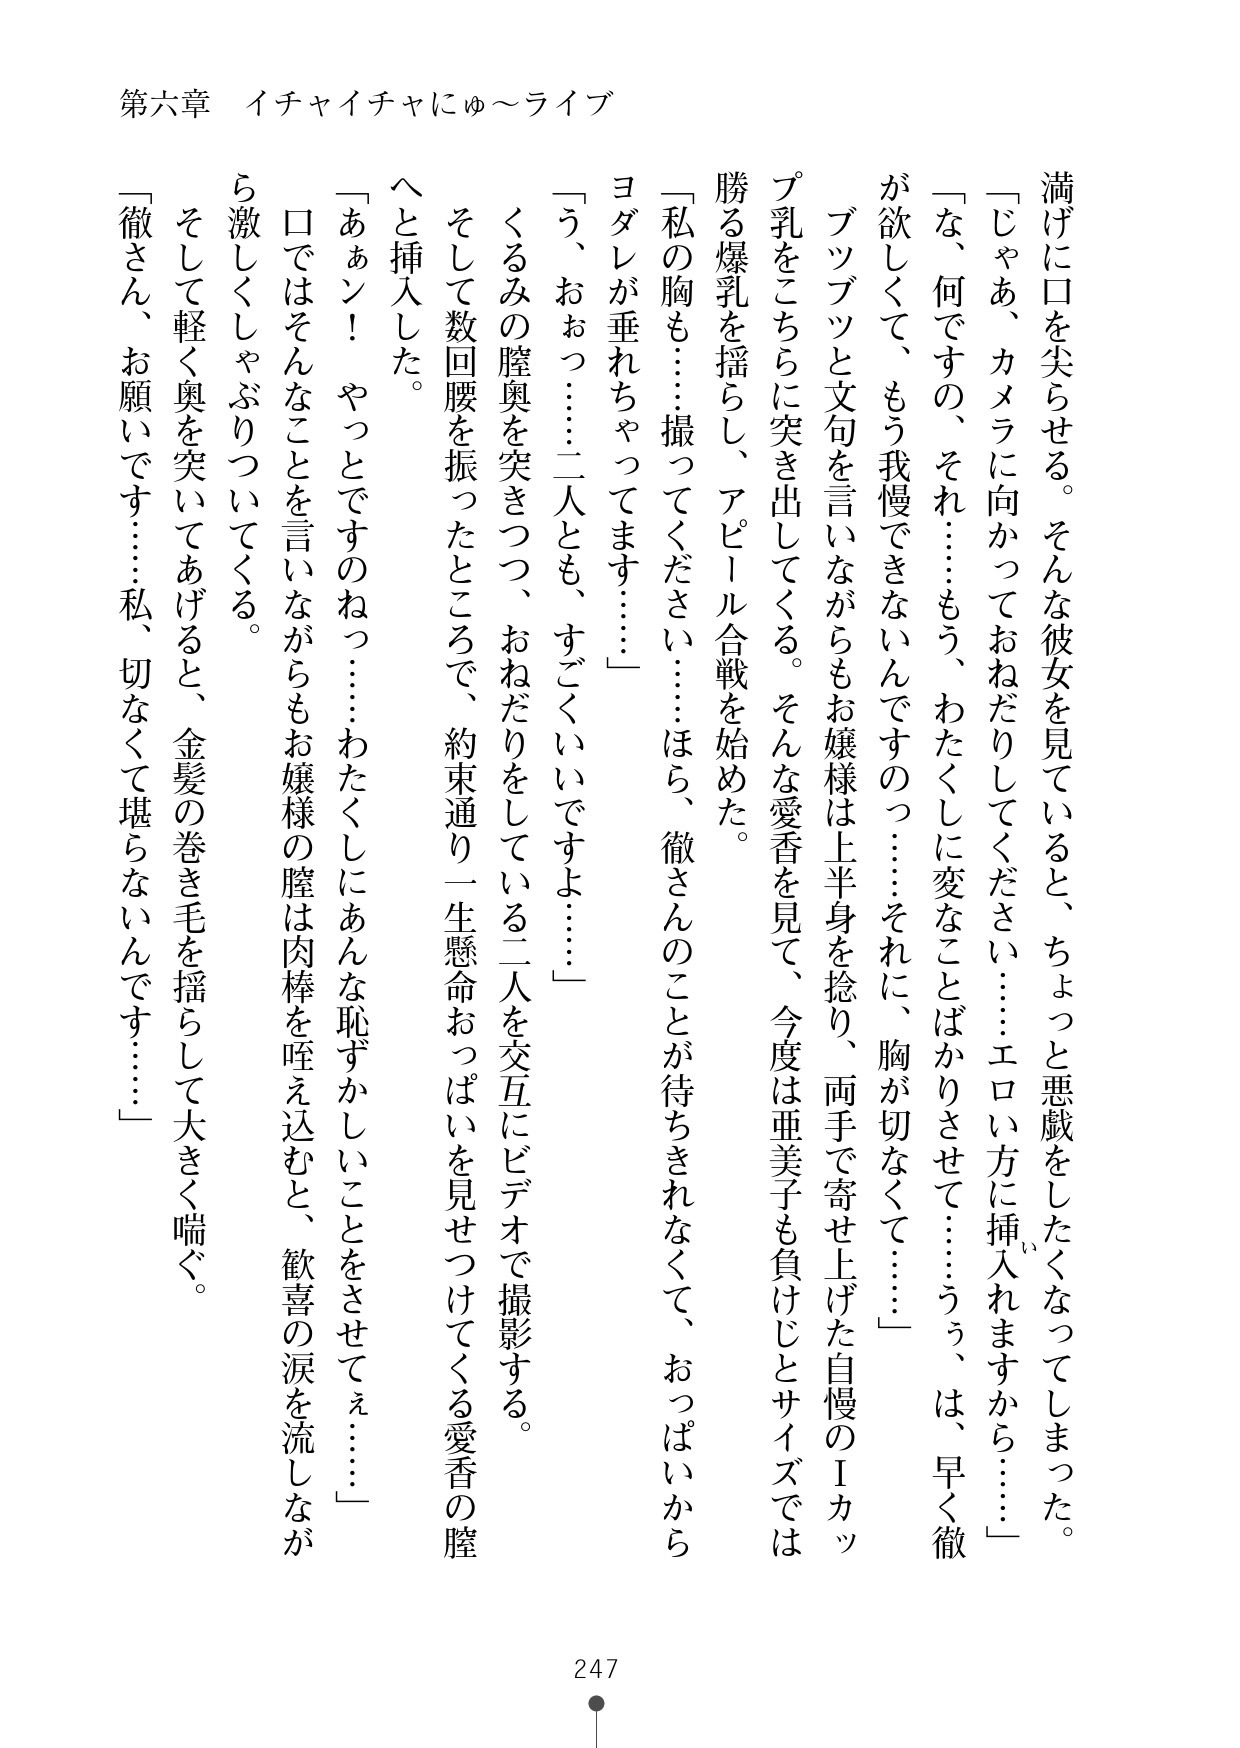 第六章　イチャイチャにゅ～ライブ
満げに口を尖らせる。そんな彼女を見ていると、ちょっと悪戯をしたくなってしまった。
「じゃあ、カメラに向かっておねだりしてください……エロい方に挿入れますから……」
い
「な、何ですの、それ……もう、わたくしに変なことばかりさせて……うぅ、は、早く徹
が欲しくて、もう我慢できないんですのっ……それに、胸が切なくて……」
ブツブツと文句を言いながらもお嬢様は上半身を捻り、両手で寄せ上げた自慢のＩカッ
プ乳をこちらに突き出してくる。そんな愛香を見て、今度は亜美子も負けじとサイズでは
勝る爆乳を揺らし、アピール合戦を始めた。
「私の胸も……撮ってください……ほら、徹さんのことが待ちきれなくて、おっぱいから
ヨダレが垂れちゃってます……」
「う、おぉっ……二人とも、すごくいいですよ……」
くるみの膣奥を突きつつ、おねだりをしている二人を交互にビデオで撮影する。
そして数回腰を振ったところで、約束通り一生懸命おっぱいを見せつけてくる愛香の膣
へと挿入した。
「あぁン！　やっとですのねっ……わたくしにあんな恥ずかしいことをさせてぇ……」
口ではそんなことを言いながらもお嬢様の膣は肉棒を咥え込むと、歓喜の涙を流しなが
ら激しくしゃぶりついてくる。
そして軽く奥を突いてあげると、金髪の巻き毛を揺らして大きく喘ぐ。
「徹さん、お願いです……私、切なくて堪らないんです……」
247